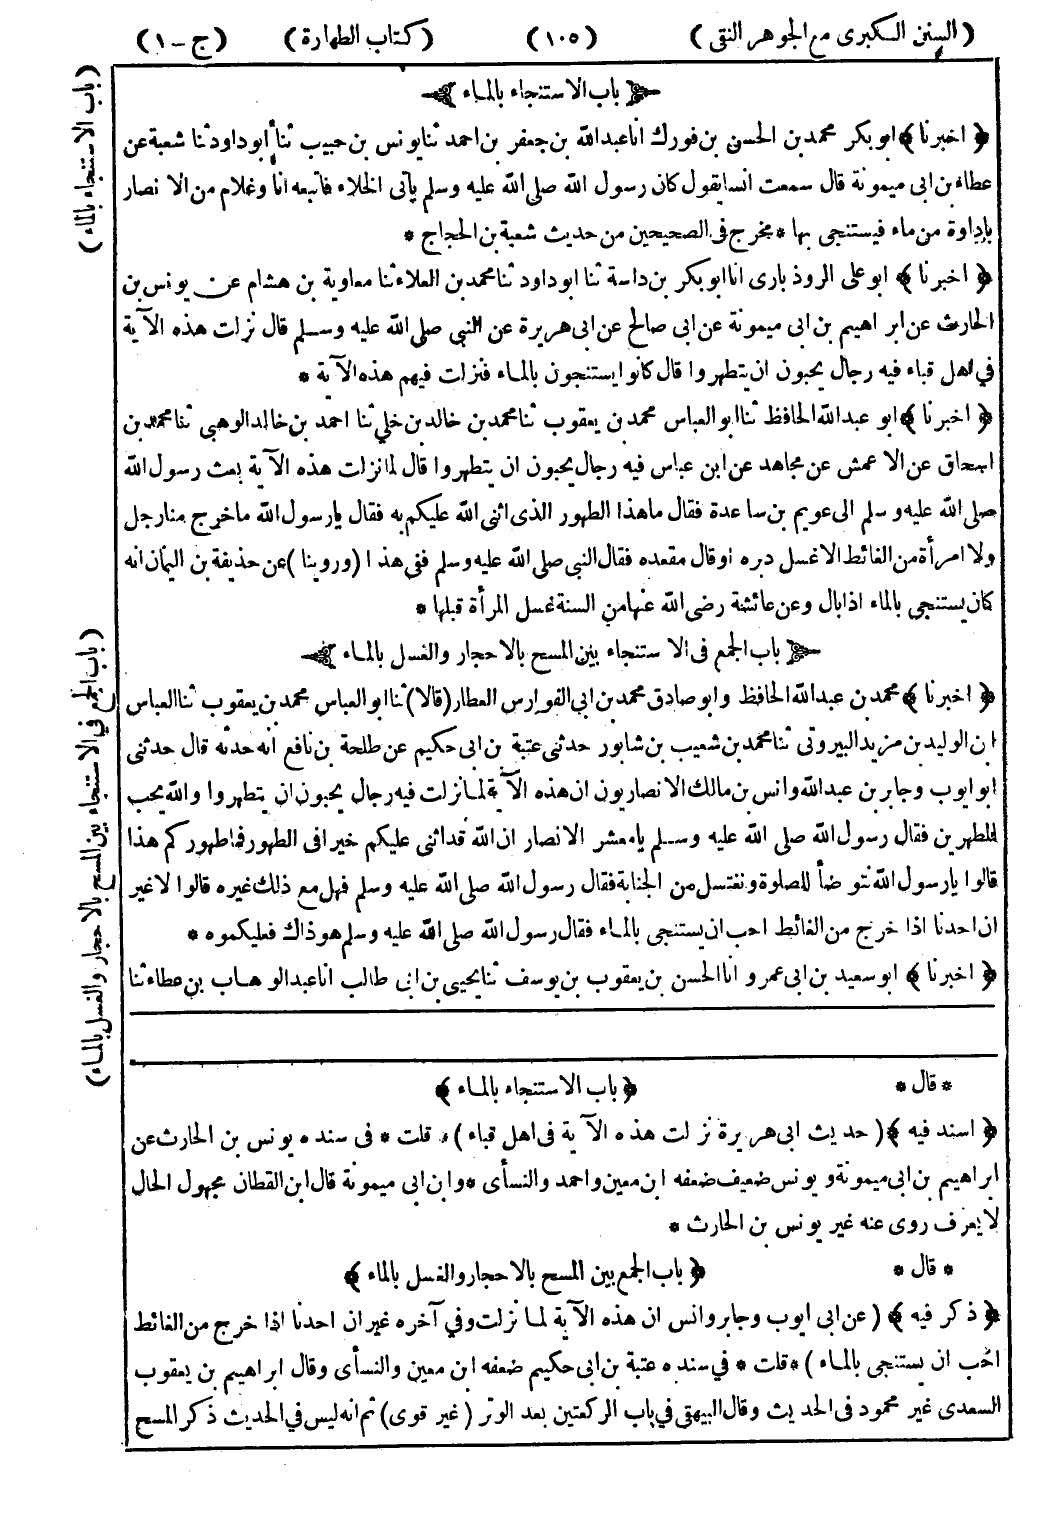 (السنن الكبرى مع الجوهر النقى) (١٠٥) (كتاب الطهارة) (ج-١)
باب الاستنجاء بالماء
(اخبرنا) ابو بكر محمد بن الحسن بن فورك انا عبدالله بن جعفر بن احمد ثنا يونس بن حبيب ثنا أبو داود ثنا شعبة عن
عطاء بن ابى ميمونة قال سمعت انسا يقول كان رسول الله صلى الله عليه وسلم يأتى الخلاء فاتبعه انا وغلام من الانصار
بإداوة من ماء فيستنجى بها * مخرج فى الصحيحين من حديث شعبة بن الحجاج *
(اخبرنا) ابو على الروذبارى انا ابو بكر بن داسة ثنا ابو داود ثنا محمد بن العلاء ثنا معاوية بن هشام عن يونس بن
الحارث عن ابراهيم بن ابى ميمونة عن ابى صالح عن ابى هريرة عن النبى صلى الله عليه وسلم قال نزلت هذه الآية
فى اهل قباء فيه رجال يحبون ان يتطهروا قال كانوا يستنجون بالماء فنزلت فيهم هذه الآية *
(اخبرنا) ابو عبدالله الحافظ ثنا ابو العباس محمد بن يعقوب ثنا محمد بن خالد بن خلي ثنا احمد بن خالد الوهبى ثنا محمد بن
اسحاق عن الاعمش عن مجاهد عن ابن عباس فيه رجال يحبون ان يتطهروا قال لما نزلت هذه الآية بعث رسول الله
صلى الله عليه وسلم الى عويم بن ساعدة فقال ما هذا الطهور الذى اثنى الله عليكم به فقال يا رسول الله ما خرج منا رجل
ولا امرأة من الغائط الا غسل دبره او قال مقعده فقال النبى صلى الله عليه وسلم ففى هذا (وروينا) عن حذيفة بن اليمان انه
كان يستنجى بالماء اذا بال وعن عائشة رضى الله عنها من السنة غسل المرأة قبلها *
باب الجمع فى الاستنجاء بين المسح بالاحجار والغسل بالماء
(اخبرنا) محمد بن عبدالله الحافظ وابو صادق محمد بن ابى الفوارس العطار (قالا) ثنا ابو العباس محمد بن يعقوب ثنا العباس
ابن الوليد بن مزيد البيروتى ثنا محمد بن شعيب بن شابور حدثنى عتبة بن ابى حكيم عن طلحة بن نافع انه حدثه قال حدثنى
ابو ايوب وجابر بن عبدالله وانس بن مالك الانصاريون ان هذه الآية لما نزلت فيه رجال يحبون ان يتطهروا والله يحب
المطهرين فقال رسول الله صلى الله عليه وسلم يا معشر الانصار ان الله قد اثنى عليكم خيرا فى الطهور فما طهوركم هذا
قالوا يا رسول الله نتوضأ للصلوة ونغتسل من الجنابة فقال رسول الله صلى الله عليه وسلم فهل مع ذلك غيره قالوا لا غير
ان احدنا اذا خرج من الغائط احب ان يستنجى بالماء فقال رسول الله صلى الله عليه وسلم هو ذاك فعليكموه *
(اخبرنا) ابو سعيد بن ابى عمرو انا الحسن بن يعقوب بن يوسف ثنا يحيى بن ابى طالب انا عبدالوهاب بن عطاء ثنا
* قال * (باب الاستنجاء بالماء)
(اسند فيه) (حديث ابى هريرة نزلت هذه الآية فى اهل قباء) * قلت * فى سنده يونس بن الحارث عن
ابراهيم بن ابى ميمونة ويونس ضعيف ضعفه ابن معين واحمد والنسأى * وابن ابى ميمونة قال ابن القطان مجهول الحال
لا يعرف روى عنه غير يونس بن الحارث *
* قال * (باب الجمع بين المسح بالاحجار والغسل بالماء)
(ذكر فيه) (عن ابى ايوب وجابر وانس ان هذه الآية لما نزلت وفي آخره غير ان احدنا اذا خرج من الغائط
احب ان يستنجى بالماء) * قلت * في سنده عتبة بن ابى حكيم ضعفه ابن معين والنسأى وقال ابراهيم بن يعقوب
السعدى غير محمود فى الحديث وقال البيهقى في باب الركعتين بعد الوتر (غير قوى) ثم انه ليس في الحديث ذكر المسح
(باب الاستنجاء بالماء)
(باب الجمع في الاستنجاء بين المسح بالاحجار والغسل بالماء)